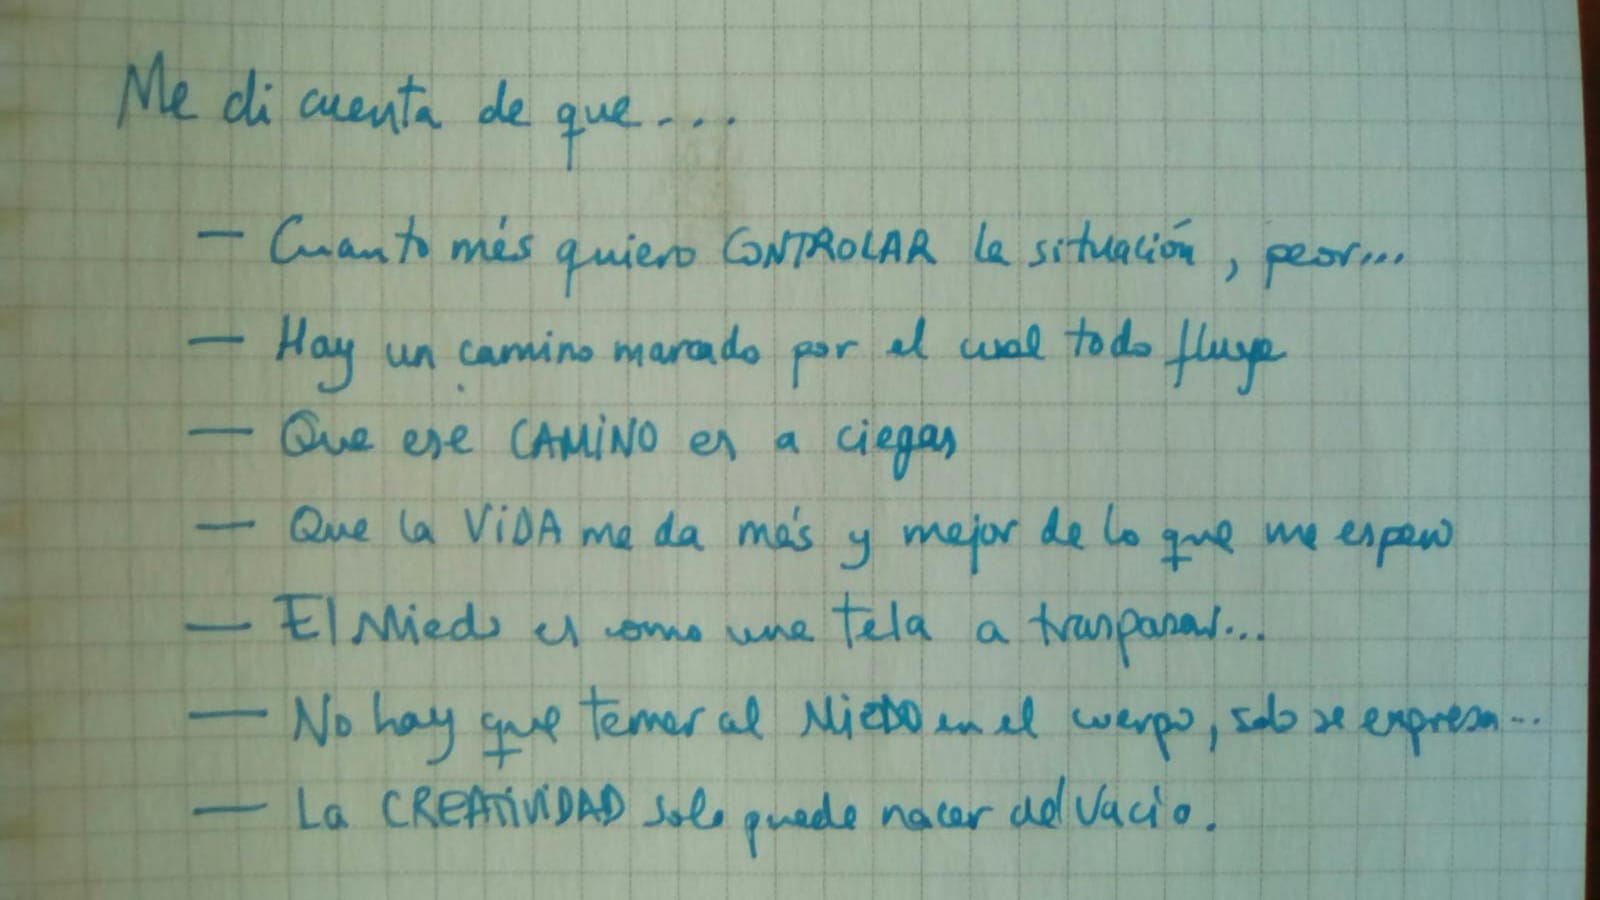 Me di cuenta de que....
— Cuanto más quiero CONTROLAR la situación, peor...
— Hay un camino marcado por el cual todo fluye
— Que ese CAMINO es a ciegas
— Que la VIDA me da más y mejor de lo que me espero
— El Miedo es como una tela a traspasar...
— No hay que temer al MIEDO en el cuerpo, solo se expresa...
— La CREATIVIDAD solo puede nacer del Vacío.